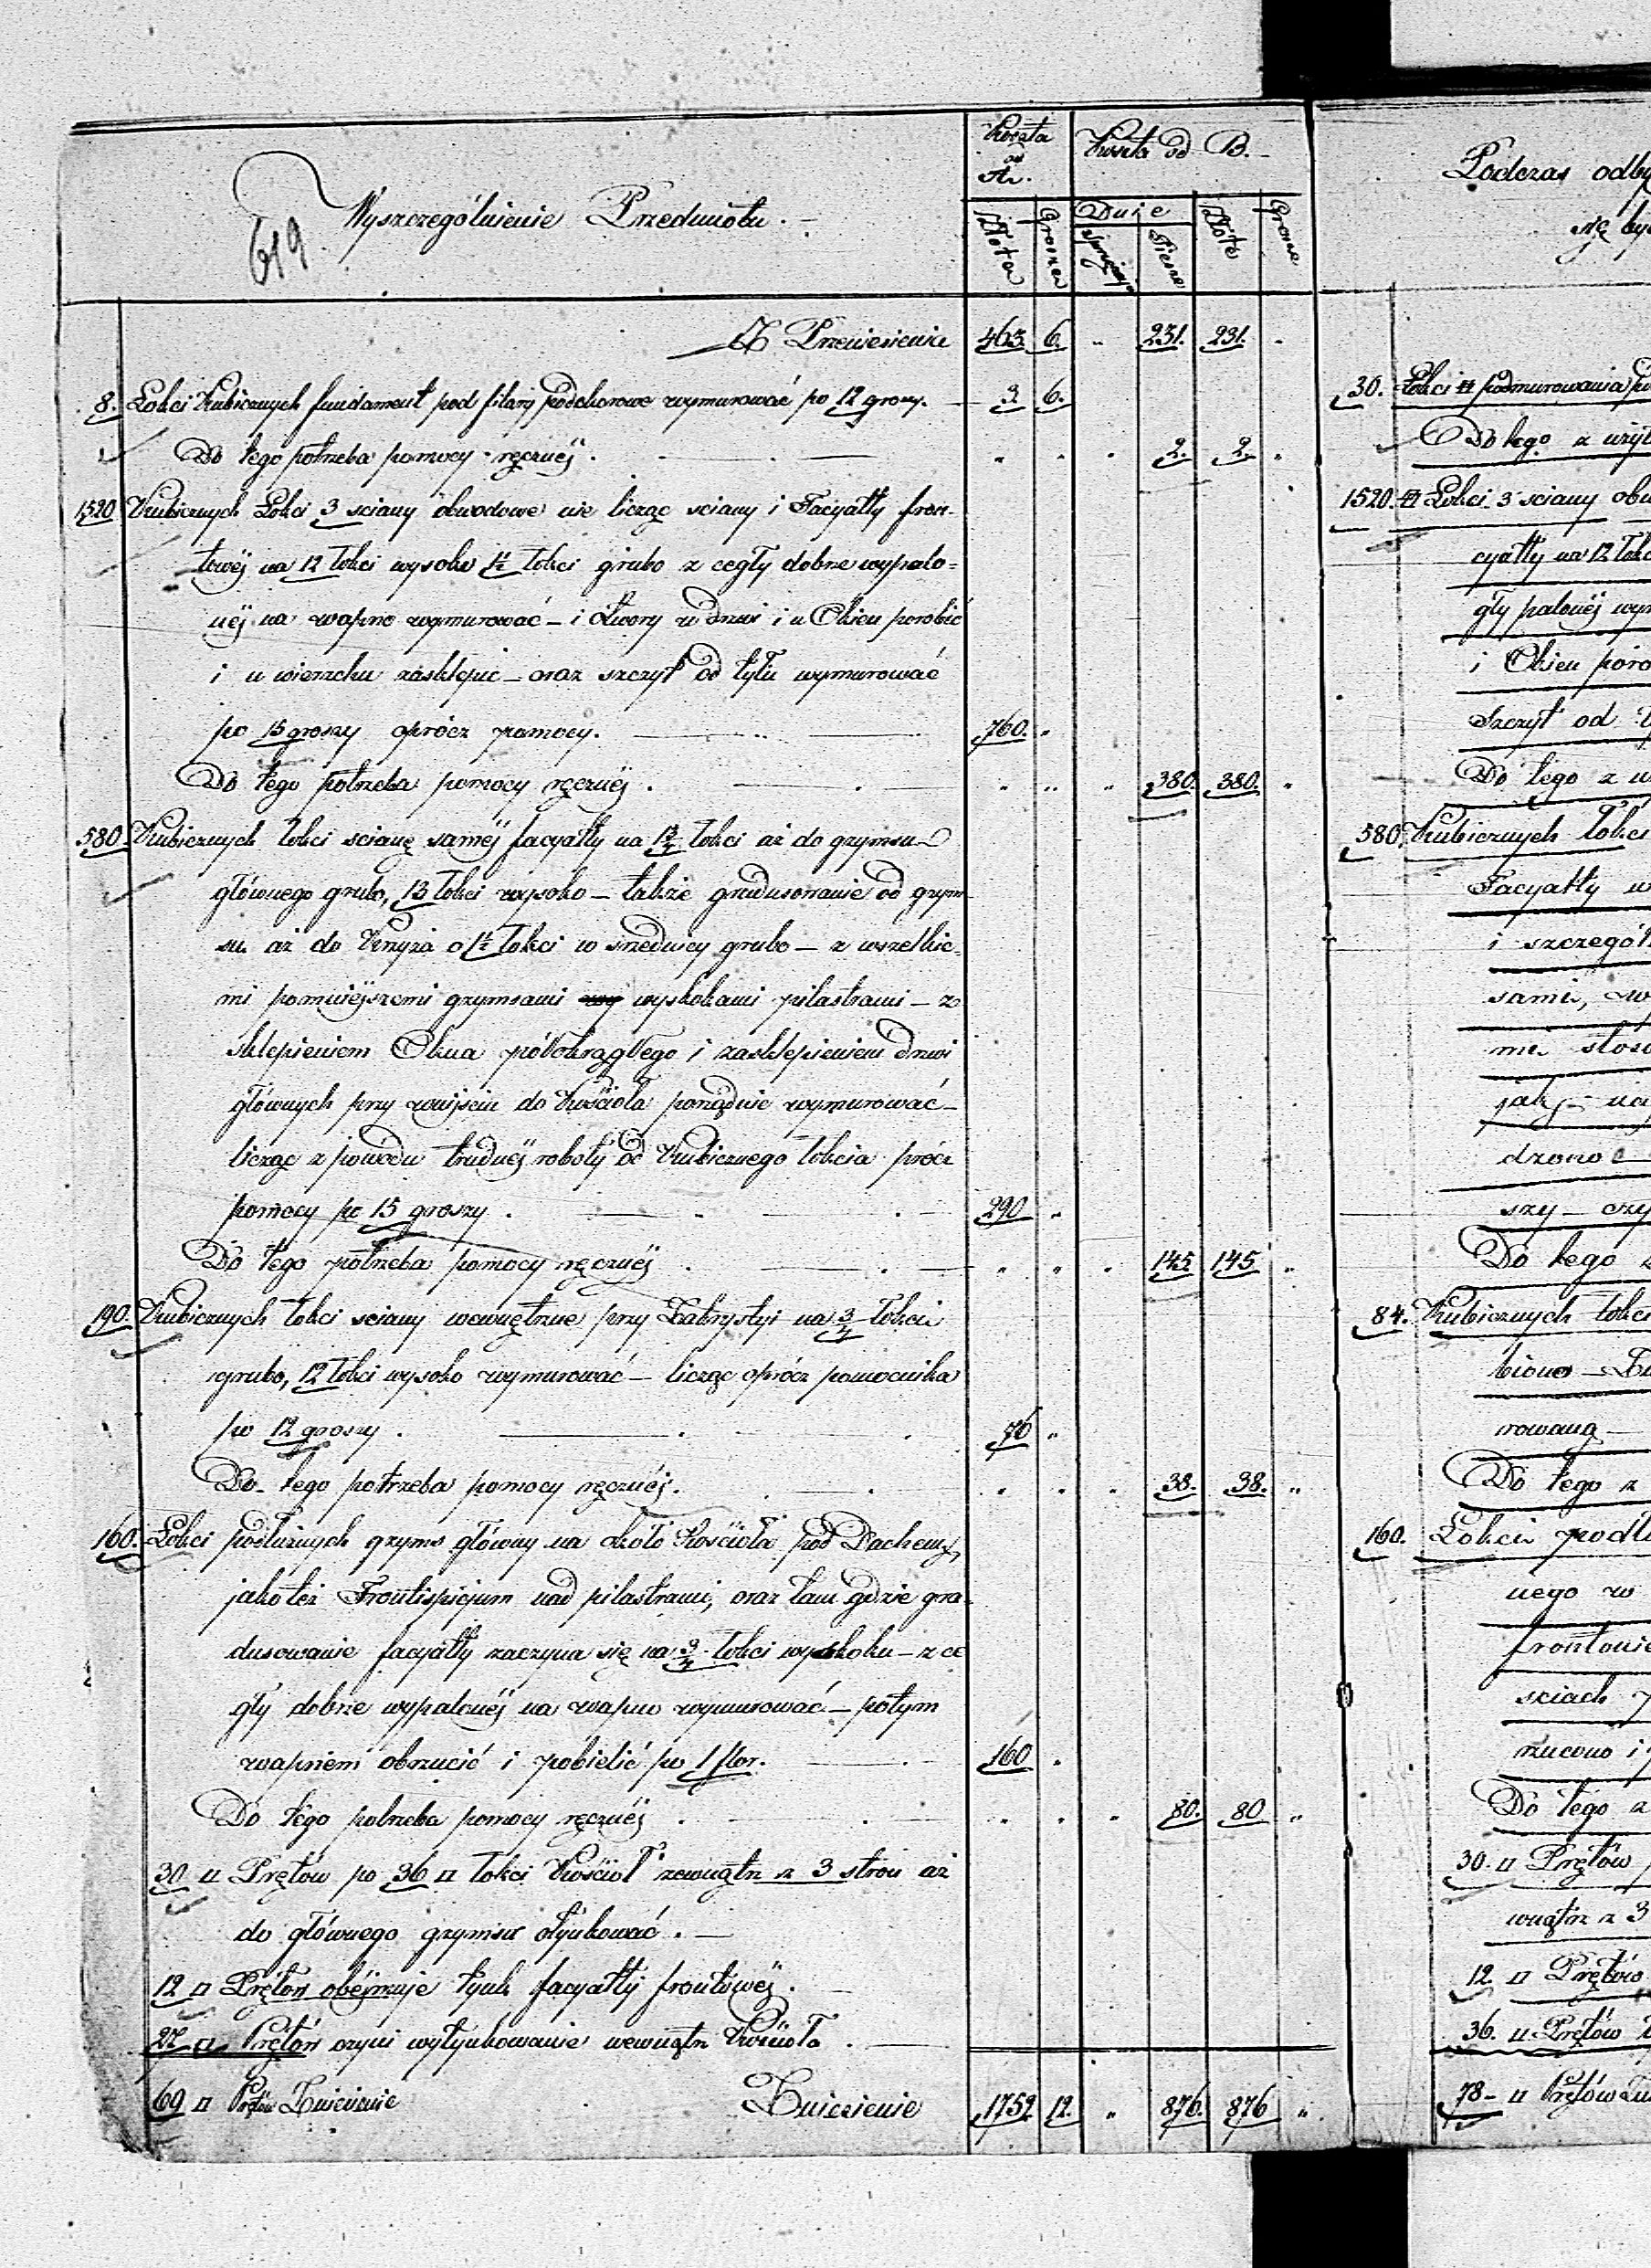 Koszta
od
A.
Koszta od B.
619
Wyszczególnienie Przedmiotu.
Dnie
Złote
Grosze
Piesze
Złote
Grosze
Z Przeniesienia 463 6. " 231. 231. "
8. Łokci Kubicznych fundament pod filary podchorowe wymurować po 12 groszy. 3 6.
Do tego potrzeba pomocy ręcznéj. 2. 2. "
1520 Kubicznych Łokci 3 sciany obwodowe nie licząc sciany i Facyatły fron-
towéj na 12 Łokci wysoko 1½ Łokci grubo z cegły dobrze wypalo-
néj na wapno wymurować – i otwory u drzwi i u Okien porobić
i u wierzchu zasklepić – oraz szczyt od tyłu wymurować
po 15 groszy oprócz pomocy. 760. "
Do tego potrzeba pomocy ręcznéj. " " " 380. 380. "
580. Kubicznych Łokci scianę saméj facyatły na Łokci aż do grzymsu
głównego grubo, 13 Łokci wysoko – także gradusowanie od grzym-
su aż do Krzyża o 1½ Łokci w srzednicy grubo – z wszelkie-
mi pomniéjszemi grzymsami wyskokami pilastrami – z
sklepieniem Okna półokrągłego i zasklepieniem drzwi
głównych przy wnijściu do Kościoła porządnie wymurować –
licząc z powodu trudnéj roboty od Kubicznego Łokcia prócz
pomocy po 15 groszy. 290 "
Do tego potrzeba pomocy ręcznéj. " " " 145 145 "
190. Kubicznych Łokci sciany wewnętrzne przy Zakrystyi na 3/4 Łokcia
grubo, 12 Łokci wysoko wymurować – licząc oprócz pomocnika
po 12 groszy. 76 "
Do tego potrzeba pomocy ręcznéj. " " " 38. 38. "
160. Łokci podłużnych gzyms główny na około Kościoła pod Dachem,
jako też Frontispicjum nad pilastrami, oraz tam gdzie gra-
dusowanie facyatły zaczyna się na 3/4 Łokci wyskoku – z ce
gły dobrze wypalonéj na wapno wymurować – potym
wapniem obrzucić i pobielić po 1 flor. 160 "
Do tego potrzeba pomocy ręcznéj. " " " 80. 80 "
30 □ Prętów po 36 □ Łokci Kościoł zewnątrz z 3 stron aż
do głównego grzymsu otynkować.
12 □ Prętów obéjmuje tynk facyatły frontowéj.
27 □ Prętów czyni wytynkowanie wewnątrz Kościoła.
69 □ Prętów Zniesienie Zniesienie 1752 12. " 876. 876 "
Podczas odby
się by
30. Łokci □ podmurowania po
Do tego z użyt
1520. □ Łokci 3 sciany obw
cyatły na 12 Łokc
gły palonéj wym
i Okien poro
Szczyt od
Do tego z u
580. Kubicznych Łokci
Facyatły w
i szczegół
sami,
mi
jak
dzono
szy – czy
Do tego
84. Kubicznych Łokci
biono –
rowaną –
Do tego z
160. Łokci podłu
nego w
frontonie
sciach
rzucono i
Do tego z
30. □ Prętów
wnątrz z 3
12. □ Prętów
36. □ Prętów
78 – □ Prętów